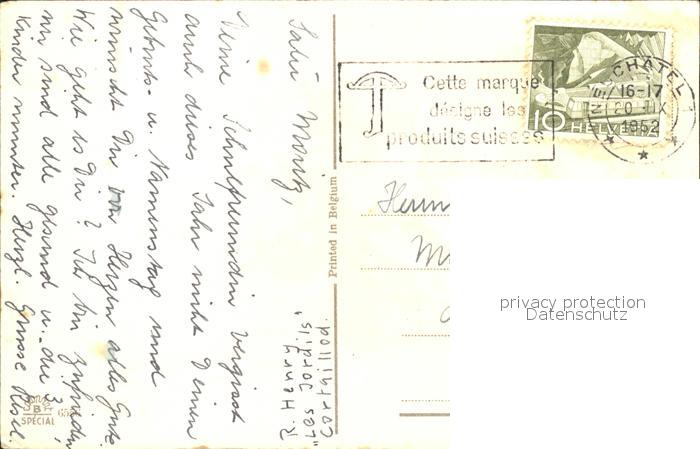 Salü Moritz,
Deine Schulfreundin vergisst
auch dieses Jahr nicht Deinen
Geburts- u. Namenstag und
wünscht Dir von Herzen alles Gute.
Wie geht es Dir? Ich bin zufrieden,
wir sind alle gesund u. die 3
Kinder munter. Herzl. Grüsse
R. Henny
"Les Jordils"
Cortaillod.
Printed in Belgium
Cette marque
désigne les
produits suisses
CHATEL
16-17
20. IX
1952
10 HELVETIA
Herrn
privacy protection
Datenschutz
B
SPÉCIAL